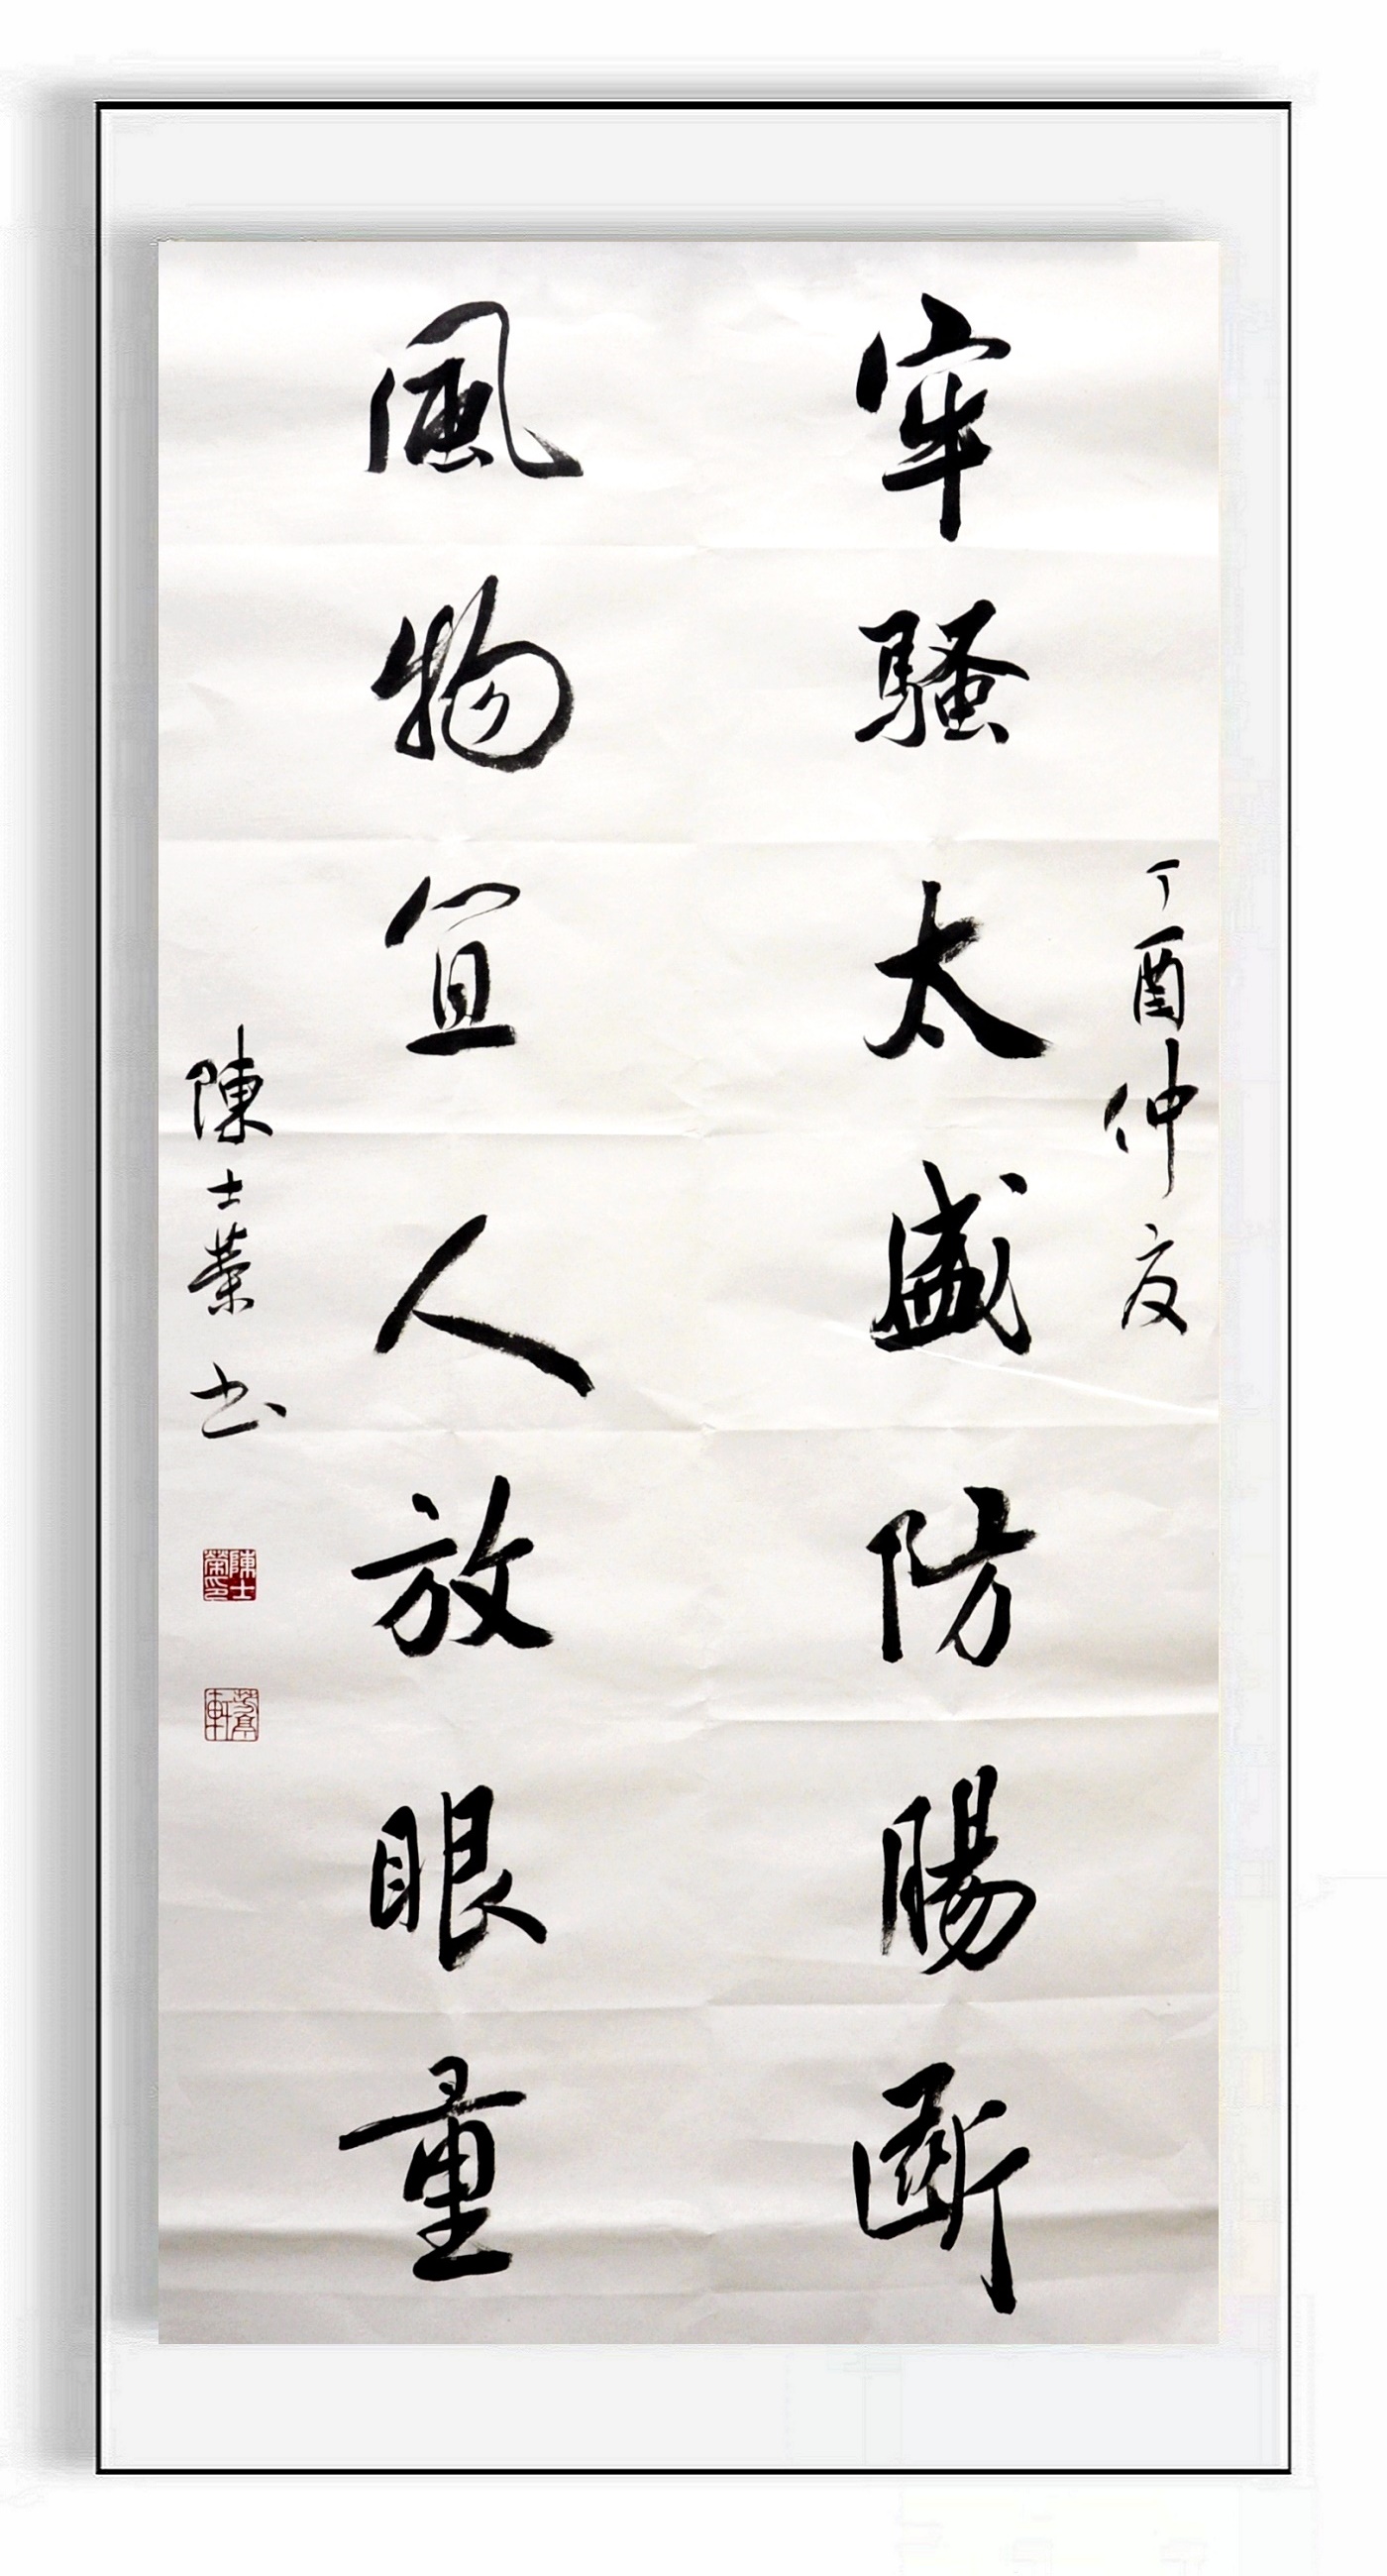 丁酉仲夏
牢騷太盛防腸斷
風物宜人放眼量
陳士榮书
陳士榮印